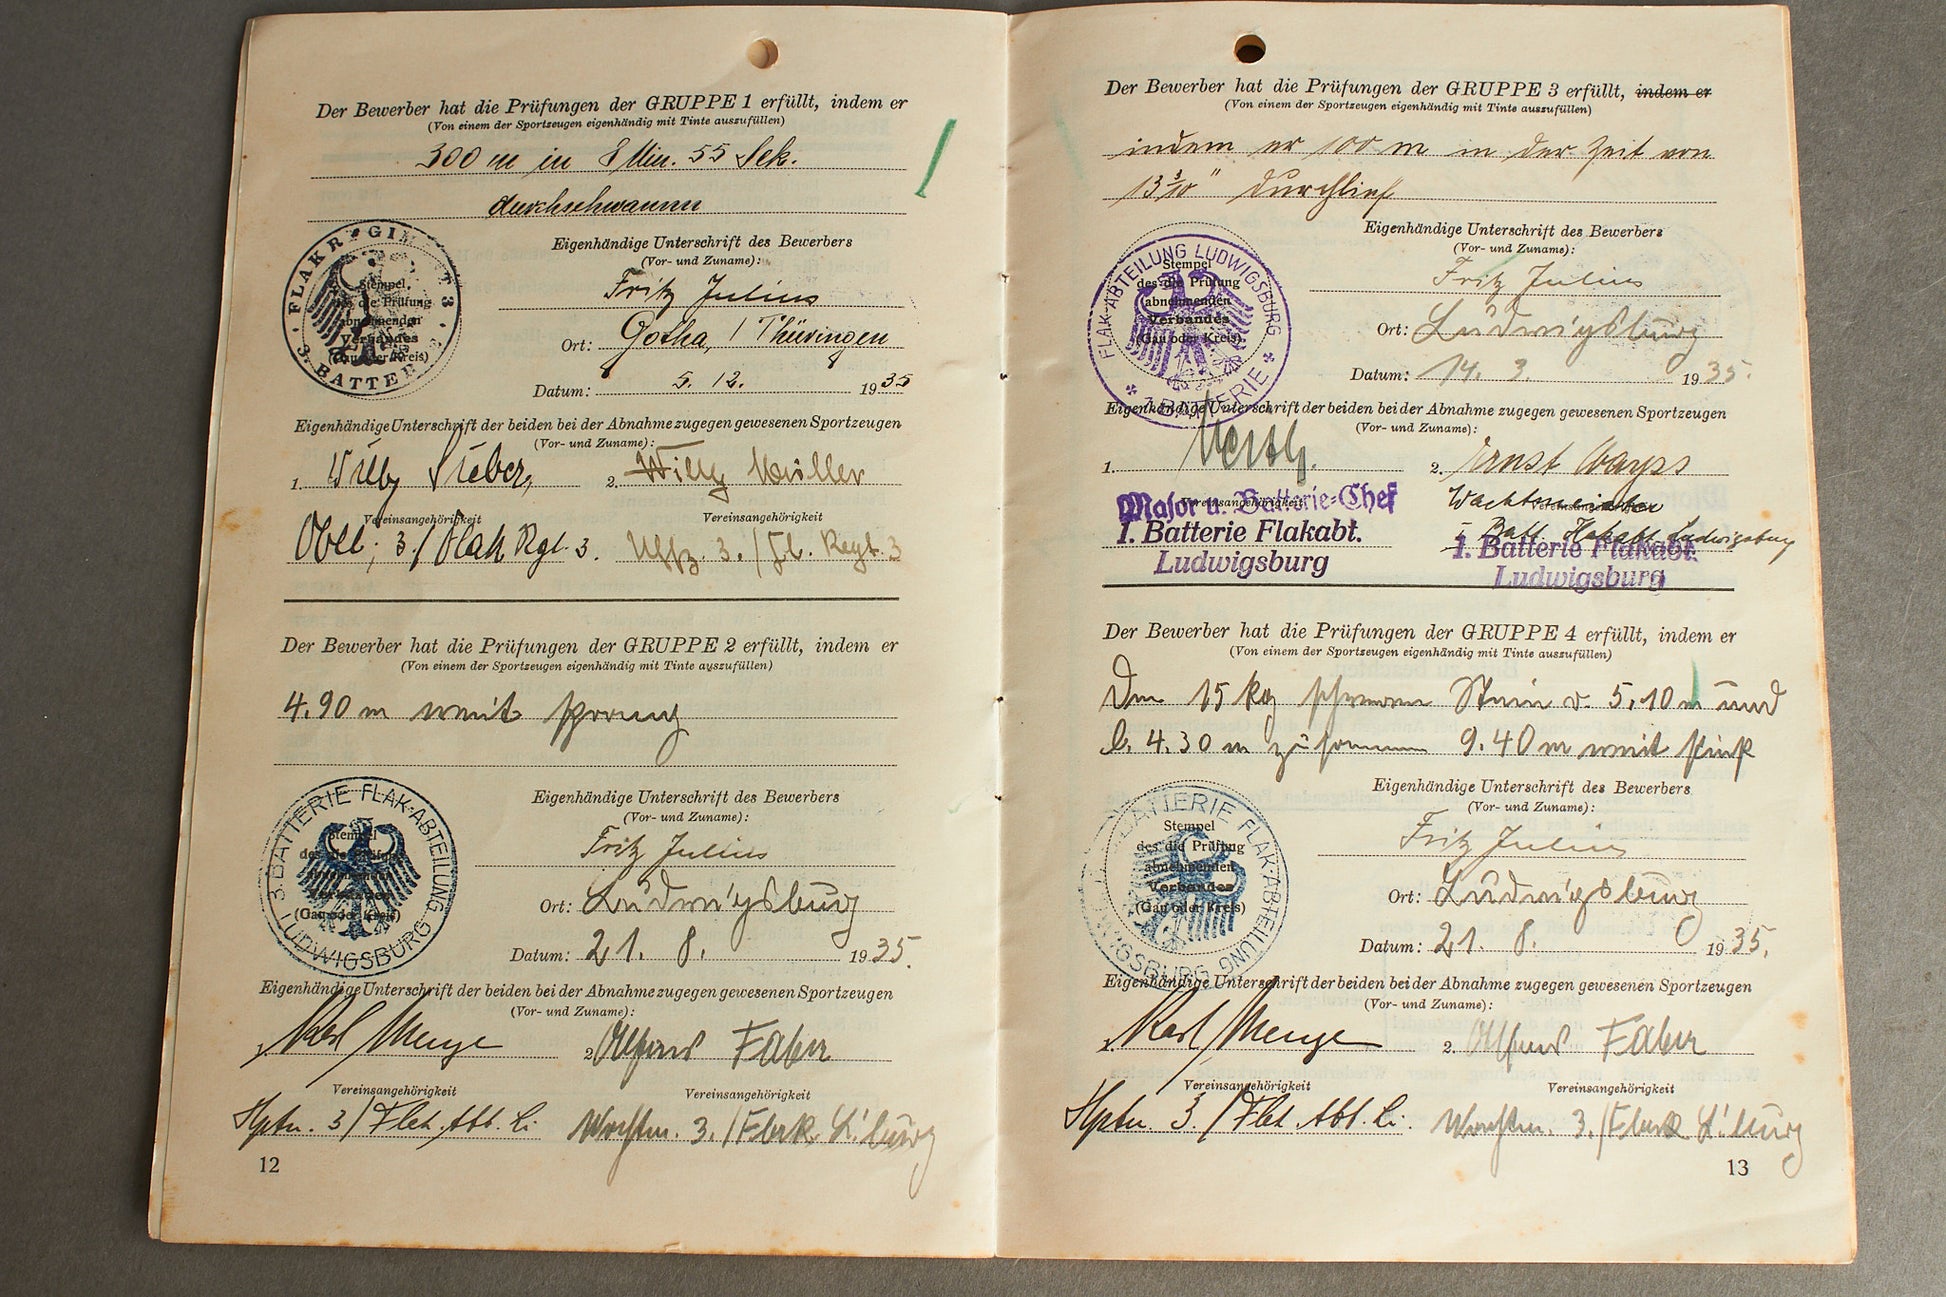 Der Bewerber hat die Prüfungen der GRUPPE 1 erfüllt, indem er
(Von einem der Sportzeugen eigenhändig mit Tinte auszufüllen)
300 m in 8 Min. 55 Sek.
durchschwamm
FLAKREGIMENT 3
3. BATTERIE
Stempel
des die Prüfung
abnehmenden
Verbandes
(Gau oder Kreis)
Eigenhändige Unterschrift des Bewerbers
(Vor- und Zuname):
Fritz Julius
Ort: Gotha, / Thüringen
Datum: 5. 12. 1935
Eigenhändige Unterschrift der beiden bei der Abnahme zugegen gewesenen Sportzeugen
(Vor- und Zuname):
1. Willy Sieber, 2. Willy Müller
Vereinsangehörigkeit Vereinsangehörigkeit
3./Flak Rgt. 3. Uffz. 3./ Regt. 3
Der Bewerber hat die Prüfungen der GRUPPE 2 erfüllt, indem er
(Von einem der Sportzeugen eigenhändig mit Tinte auszufüllen)
4.90 m weit sprang
3. BATTERIE FLAK-ABTEILUNG
LUDWIGSBURG
Stempel
des die Prüfung
abnehmenden
Verbandes
(Gau oder Kreis)
Eigenhändige Unterschrift des Bewerbers
(Vor- und Zuname):
Fritz Julius
Ort: Ludwigsburg
Datum: 21. 8. 1935.
Eigenhändige Unterschrift der beiden bei der Abnahme zugegen gewesenen Sportzeugen
(Vor- und Zuname):
1. Karl Menge 2. Alfons Faber
Vereinsangehörigkeit Vereinsangehörigkeit
Hptm. 3/Flak. Abt. Li. Wachtm. 3./Flak L'burg
12
Der Bewerber hat die Prüfungen der GRUPPE 3 erfüllt, indem er
(Von einem der Sportzeugen eigenhändig mit Tinte auszufüllen)
indem er 100 m in der Zeit von
13 3/10" durchlief
FLAK-ABTEILUNG LUDWIGSBURG
* 1. BATTERIE *
Stempel
des die Prüfung
abnehmenden
Verbandes
(Gau oder Kreis)
Eigenhändige Unterschrift des Bewerbers
(Vor- und Zuname):
Fritz Julius
Ort: Ludwigsburg
Datum: 14. 3. 1935.
Eigenhändige Unterschrift der beiden bei der Abnahme zugegen gewesenen Sportzeugen
(Vor- und Zuname):
1. 2. Ernst
Vereinsangehörigkeit Vereinsangehörigkeit
Major u. Batterie-Chef Wachtmeister
1. Batterie Flakabt. Batt. Flakabt. Ludwigsburg
Ludwigsburg 1. Batterie Flakabt.
Ludwigsburg
Der Bewerber hat die Prüfungen der GRUPPE 4 erfüllt, indem er
(Von einem der Sportzeugen eigenhändig mit Tinte auszufüllen)
den 15 kg schweren Stein r. 5,10 m und
l. 4.30 m zusammen 9.40 m weit stieß
3. BATTERIE FLAK-ABTEILUNG
LUDWIGSBURG
Stempel
des die Prüfung
abnehmenden
Verbandes
(Gau oder Kreis)
Eigenhändige Unterschrift des Bewerbers
(Vor- und Zuname):
Fritz Julius
Ort: Ludwigsburg
Datum: 21. 8. 1935.
Eigenhändige Unterschrift der beiden bei der Abnahme zugegen gewesenen Sportzeugen
(Vor- und Zuname):
1. Karl Menge 2. Alfons Faber
Vereinsangehörigkeit Vereinsangehörigkeit
Hptm. 3./Flak. Abt. Li. Wachtm. 3./Flak L'burg
13